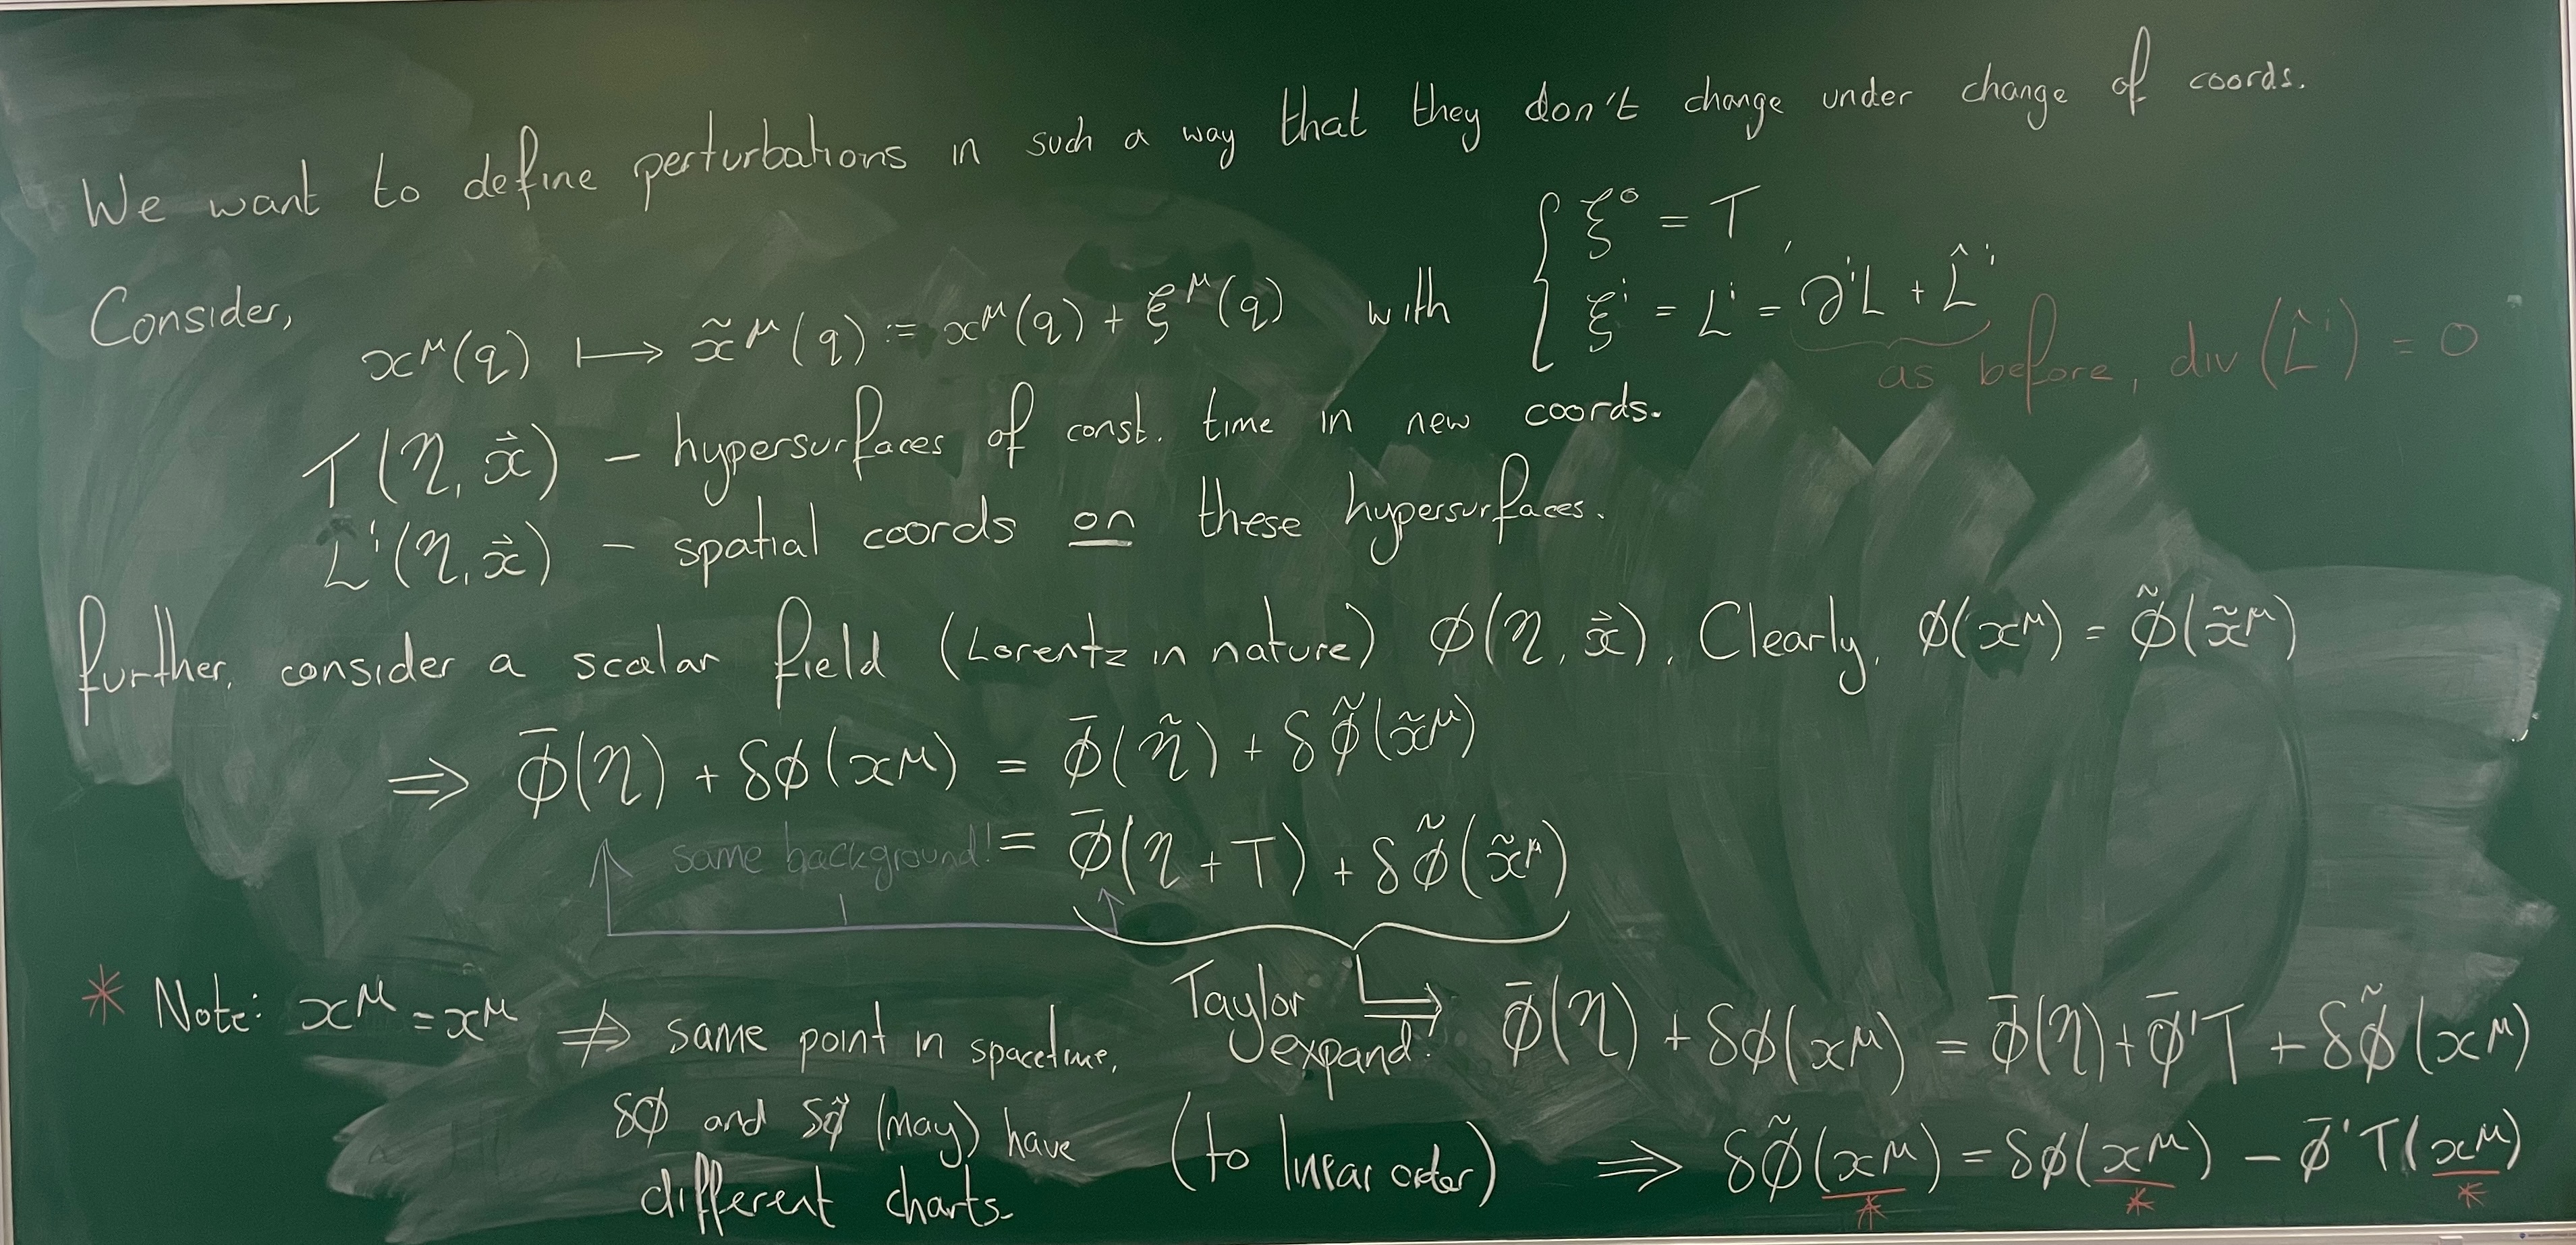 We want to define perturbations in such a way that they don't change under change of coords.
Consider,
x^μ(q) ⟼ x̃^μ(q) := x^μ(q) + ξ^μ(q) with { ξ^0 = T, ξ^i = L^i = ∂^i L + L̂^i
as before, div(L̂^i) = 0
T(η, x⃗) – hypersurfaces of const. time in new coords.
L^i(η, x⃗) – spatial coords on these hypersurfaces.
further, consider a scalar field (Lorentz in nature) φ(η, x⃗). Clearly, φ(x^μ) = φ̃(x̃^μ)
⇒ φ̄(η) + δφ(x^μ) = φ̄(η̃) + δφ̃(x̃^μ)
same background!
= φ̄(η + T) + δφ̃(x̃^μ)
Taylor expand! φ̄(η) + δφ(x^μ) = φ̄(η) + φ̄'T + δφ̃(x^μ)
(to linear order) ⇒ δφ̃(x^μ) = δφ(x^μ) − φ̄'T(x^μ)
* * *
* Note: x^μ = x^μ ⇏ same point in spacetime,
δφ and δφ̃ (may) have
different charts.